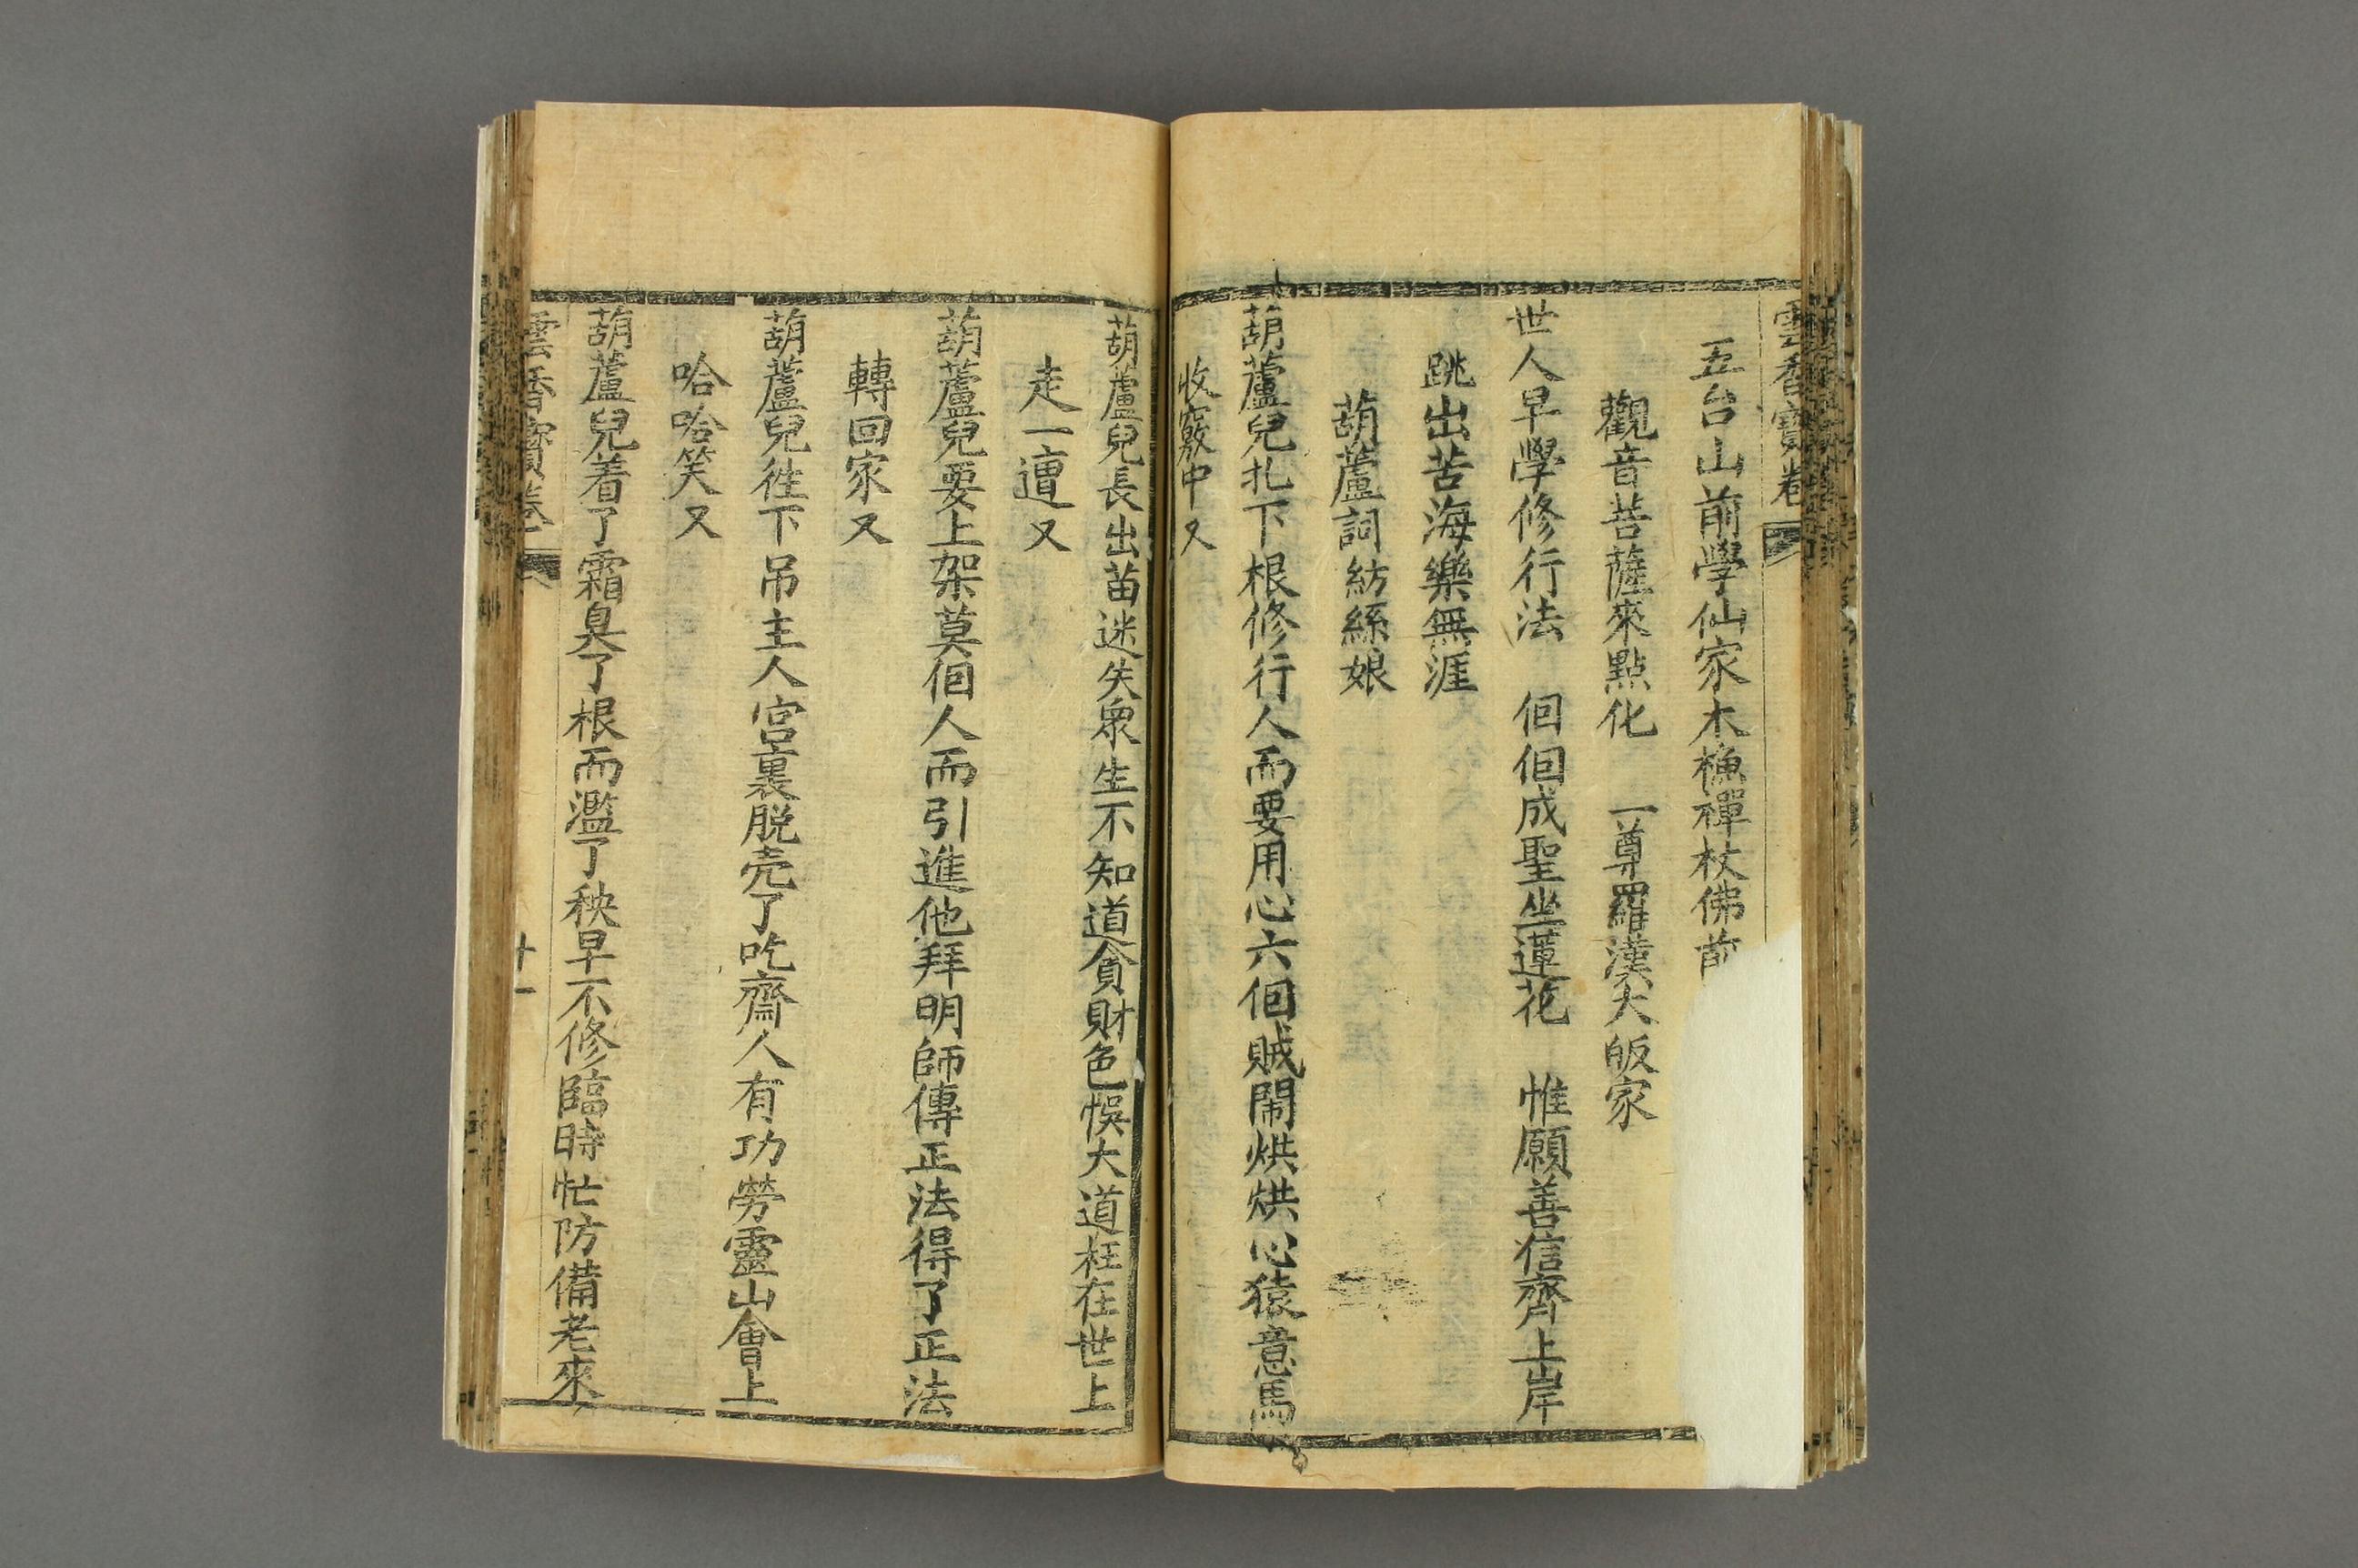 雲香寶卷
五台山前學仙家木檢禪杖佛前
觀音菩薩來點化　一尊羅漢大皈家
世人早學修行法　佪佪成聖坐蓮花　惟願善信齊上岸
跳出苦海樂無涯
葫蘆詞紡絲娘
葫蘆兒扎下根修行人而要用心六佪賊鬧烘烘心猿意馬
收竅中又
葫蘆兒長出苗迷失衆生不知道貪財色悞大道枉在世上
走一邅又
葫蘆兒要上架莫佪人而引進他拜明師傳正法得了正法
轉回家又
葫蘆兒徃下吊主人宮裏脱壳了吃齋人有功勞靈山會上
哈哈笑又
葫蘆兒着了霜臭了根而濫了秧早不修臨時忙防備老來
雲香寶卷
十一